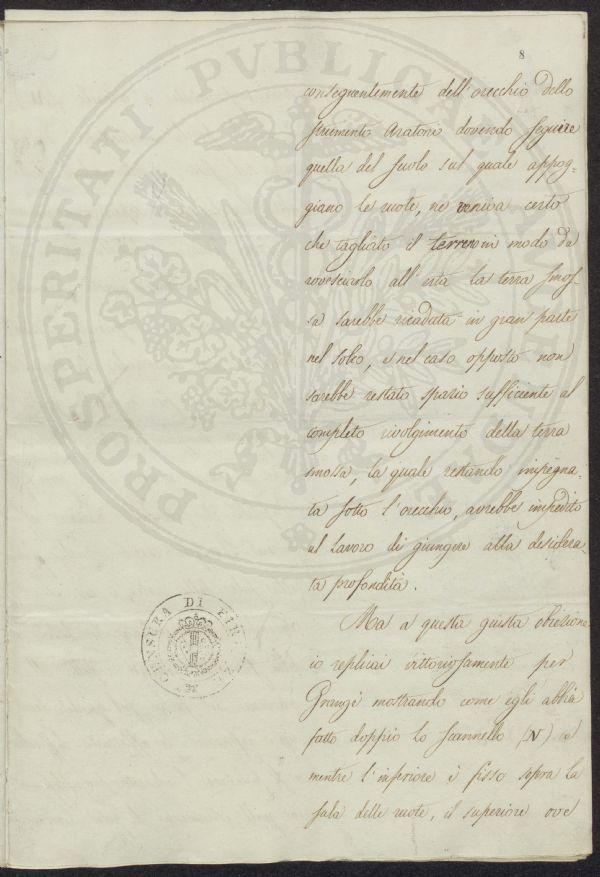 8
conseguentemente dell'orecchio dello
strumento Aratorio dovendo seguire
quella del suolo sul quale appog-
giano le ruote, ne veniva certo
che tagliato il terreno in modo da
rovesciarlo all'erta la terra smos-
sa sarebbe ricadata in gran parte
nel solco, e nel caso opposto non
sarebbe restato spazio sufficiente al
completo rivolgimento della terra
mossa, la quale restando impegna-
ta sotto l'orecchio, avrebbe impedito
al lavoro di giungere alla desidera-
ta profondità.
Ma a questa giusta obiezione
io replicai vittoriosamente per
Grangé mostrando come egli abbia
fatto doppio lo Scannello (N) e
mentre l'inferiore è fisso sopra la
sala delle ruote, il superiore ove
CENSURA DI FIRENZE
PROSPERITATI PUBLICAE